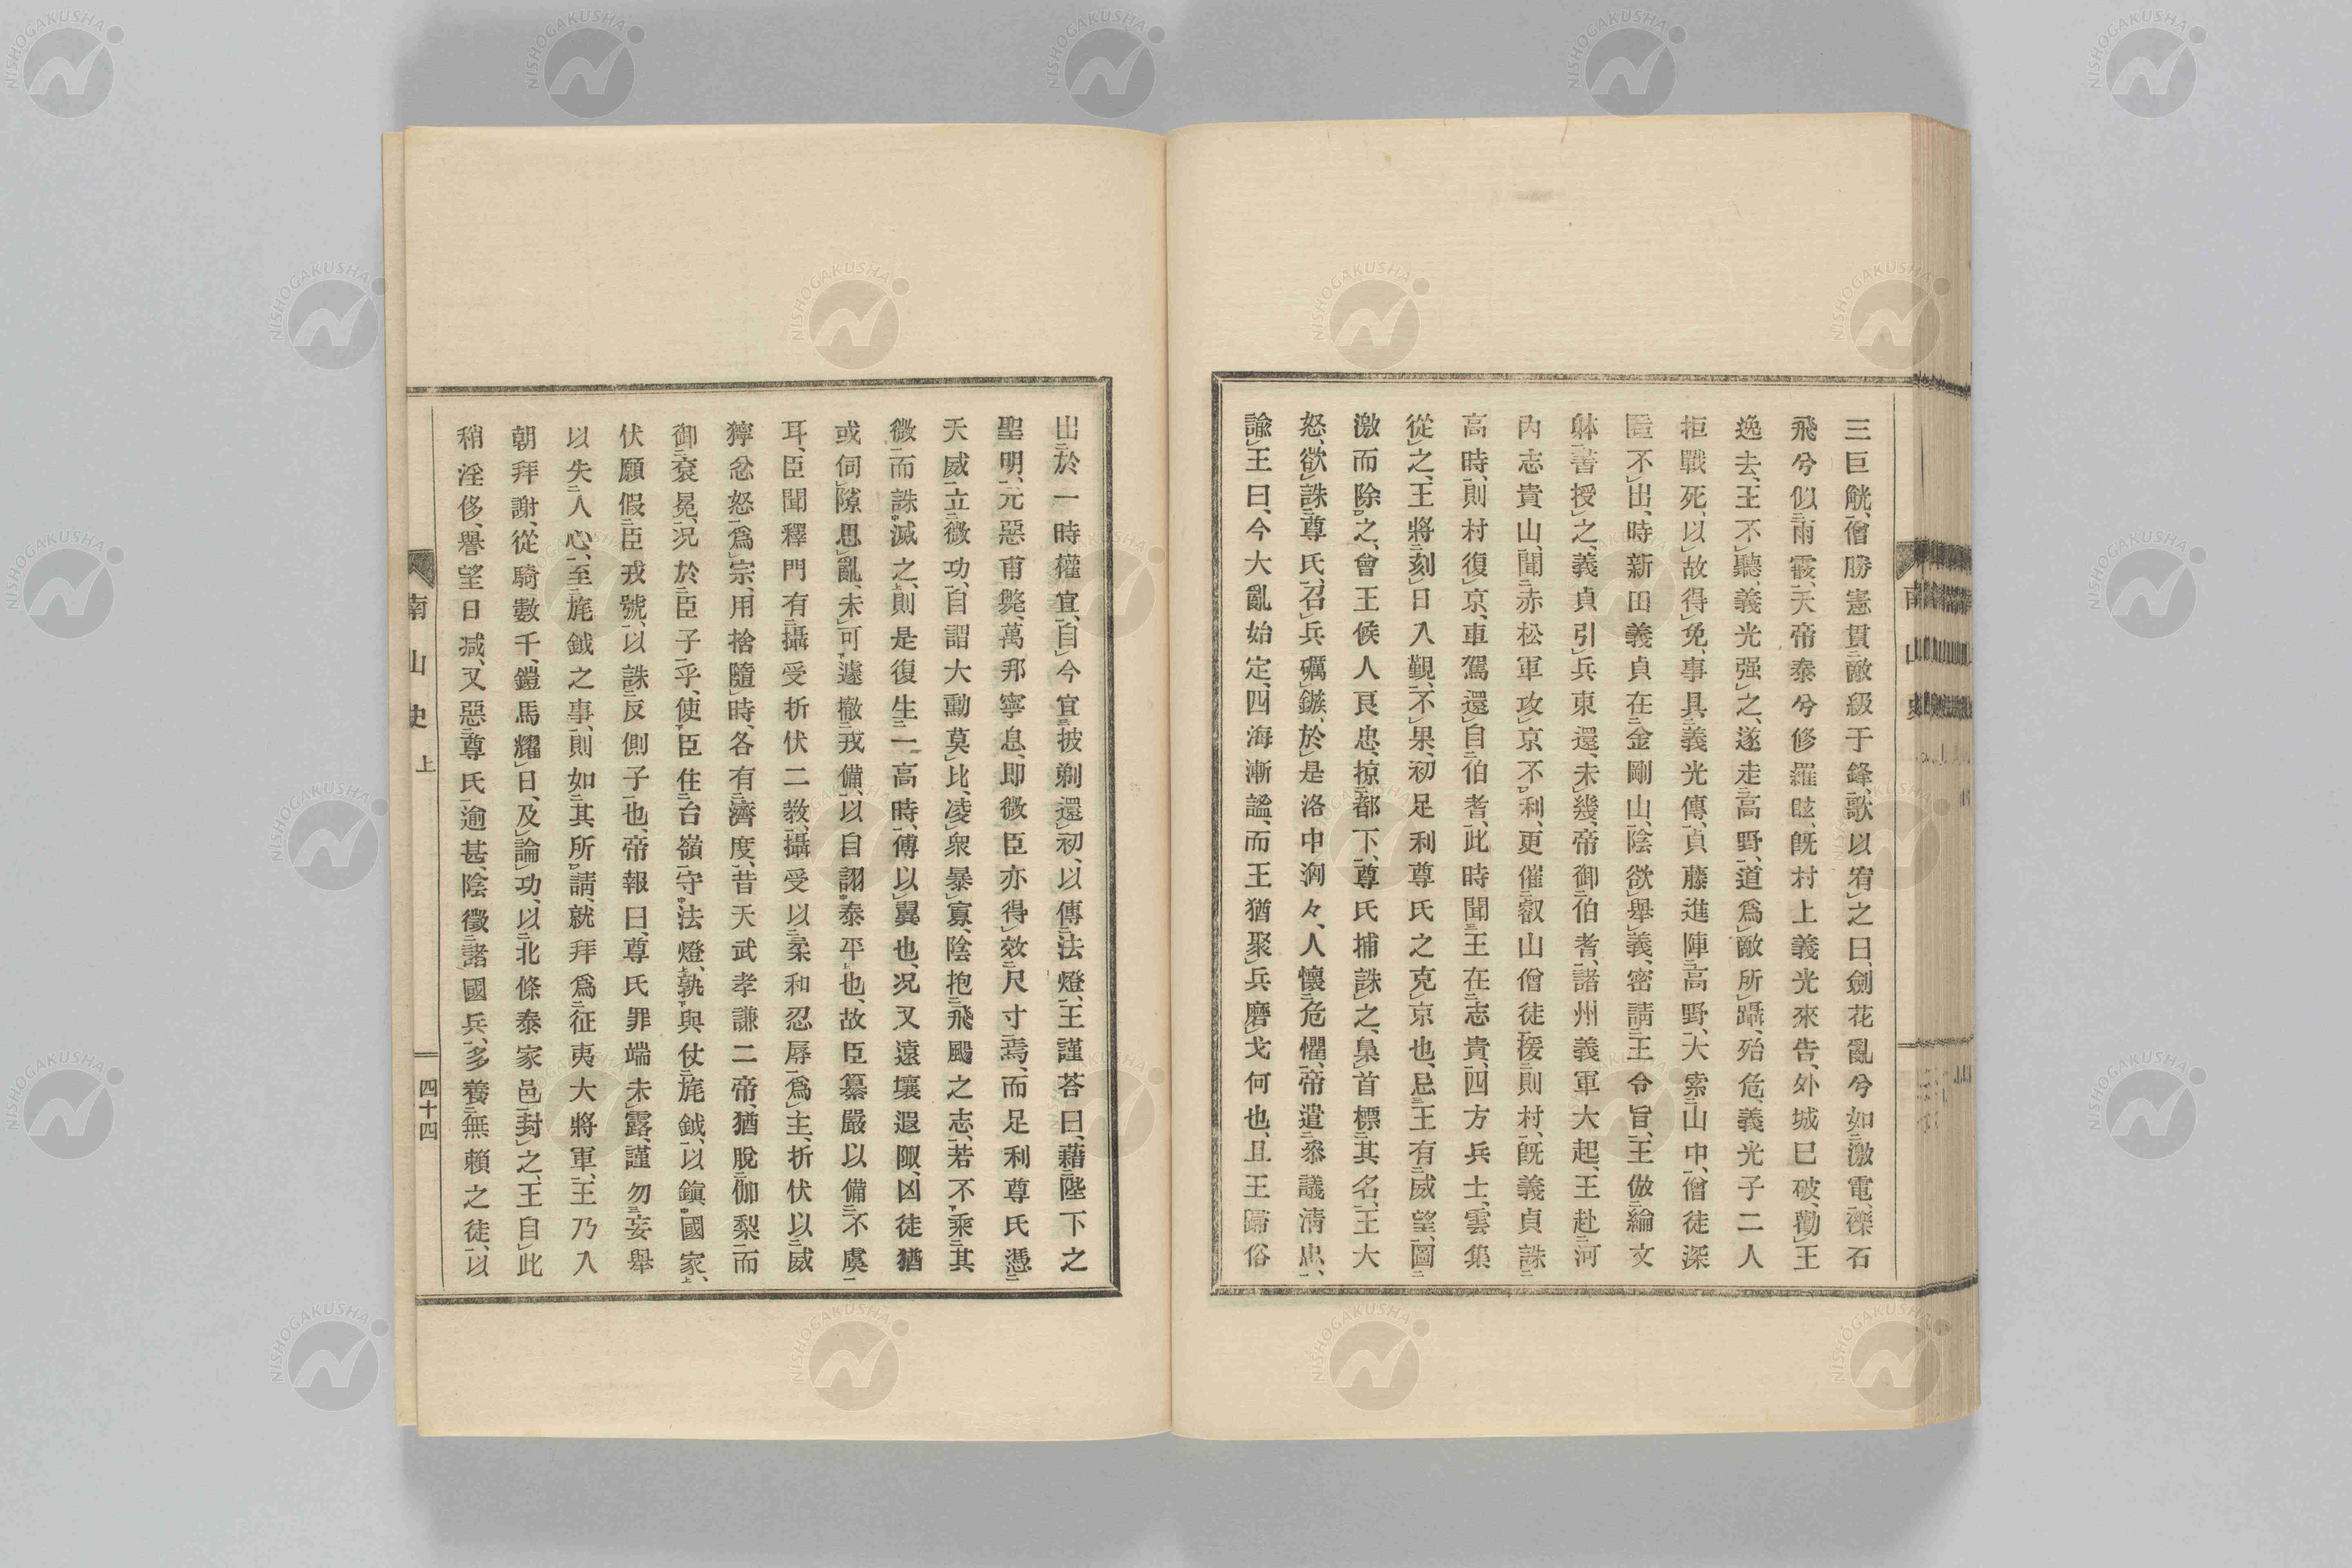 三巨觥、僧勝憲貫敵級于鋒、歌以宥之曰、劍花亂兮如激電、礫石
飛兮似雨霰、天帝泰兮修羅眩、既村上義光來告、外城已破、勸王
逸去、王不聽、義光强之、遂走高野、道爲敵所躡、殆危、義光子二人
拒戰死、以故得免、事具義光傳、貞藤進陣高野、大索山中、僧徒深
匿不出、時新田義貞在金剛山、陰欲擧義、密請王令旨、王倣綸文
躰書授之、義貞引兵東還、未幾、帝御伯耆、諸州義軍大起、王赴河
內志貴山、聞赤松軍攻京不利、更催叡山僧徒援則村、既義貞誅
高時、則村復京、車駕還自伯耆、此時聞王在志貴、四方兵士、雲集
從之、王將刻日入覲、不果、初足利尊氏之克京也、忌王有威望、圖
激而除之、會王候人良忠、掠都下、尊氏捕誅之、梟首標其名、王大
怒、欲誅尊氏、召兵礪鏃、於是洛中洶々、人懷危懼、帝遣參議淸忠、
諭王曰、今大亂始定、四海漸謐、而王猶聚兵磨戈何也、且王歸俗
出於一時權宜、自今宜披剃還初、以傳法燈、王謹荅曰、藉陛下之
聖明、元惡甫斃、萬邦寧息、即微臣亦得效尺寸焉、而足利尊氏憑
天威立微功、自謂大勳莫比、凌衆暴寡、陰抱飛颺之志、若不乘其
微而誅滅之、則是復生一高時、傅以翼也、况又遠壤遐陬、凶徒猶
或伺隙思亂、未可遽撤戎備、以自詡泰平也、故臣纂嚴以備不虞
耳、臣聞釋門有攝受折伏二教、攝受以柔和忍辱爲主、折伏以威
獰忿怒爲宗、用捨隨時、各有濟度、昔天武孝謙二帝、猶脫伽梨而
御袞冕、况於臣子乎、使臣住台嶺守法燈、孰與仗旄鉞、以鎭國家、
伏願假臣戎號、以誅反側子也、帝報曰、尊氏罪端未露、謹勿妄擧
以失人心、至旄鉞之事、則如其所請、就拜爲征夷大將軍、王乃入
朝拜謝、從騎數千、鎧馬耀日、及論功、以北條泰家邑封之、王自此
稍淫侈、譽望日減、又惡尊氏逾甚、陰徵諸國兵、多養無賴之徒、以
南山史 上
四十四